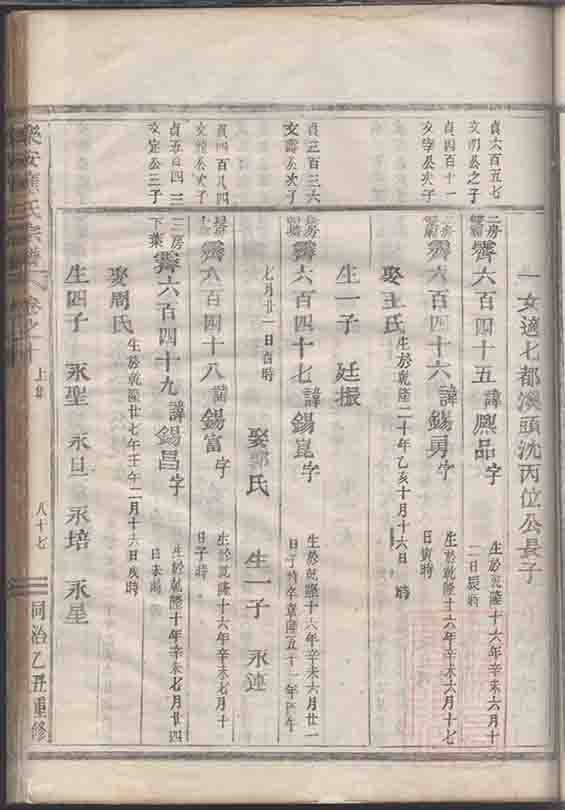 一女適七都澳頭沈丙位公長子
貞六百五七
文明公之子
二房
霽六百四十五諱興品字
生於乾隆十六年辛未六月十
二日辰時
貞四百十一
文宇公次子
二房
霽六百四十六諱錫勇字
生於乾隆十六年辛未六月十七
日寅時
娶王氏
生於乾隆二十年乙亥十月十六日 時
生一子 廷振
貞三百三六
文壽公次子
霽六百四十七諱錫崑字
生於乾隆十六年辛未六月廿一
日子時卒乾隆五十一年丙午
七月廿一日酉時
娶郭氏 生一子 永連
貞四百八四
霽六百四十八諱錫富字
生於乾隆十六年辛未七月十
日子時
貞五百四三
文定公三子
三房
下葉
霽六百四十九諱錫昌字
生於乾隆十年辛未七月廿四
日未時
娶周氏
生於乾隆廿七年壬午二月十六日戌時
生四子 永聖 永旦 永培 永星
樂安 氏宗譜 卷之十 上集 八十七 同治乙丑重修